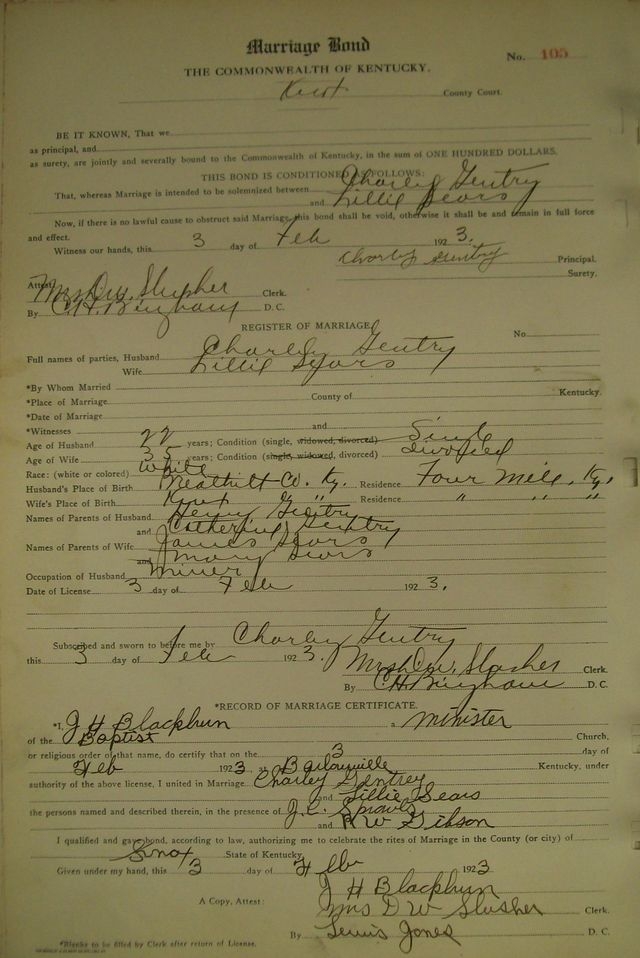 Marriage Bond
No. 105
THE COMMONWEALTH OF KENTUCKY.
Knox County Court.
BE IT KNOWN, That we
as principal, and
as surety, are jointly and severally bound to the Commonwealth of Kentucky, in the sum of ONE HUNDRED DOLLARS.
THIS BOND IS CONDITIONED AS FOLLOWS:
That, whereas Marriage is intended to be solemnized between Charley Gentry
and Lillie Sears
Now, if there is no lawful cause to obstruct said Marriage, this bond shall be void, otherwise it shall be and remain in full force
and effect.
Witness our hands, this 3 day of Feb 1923.
Charley Gentry Principal.
Surety.
Attest: Mrs D.W. Slusher Clerk.
By C.H. Bingham D. C.
REGISTER OF MARRIAGE
No.
Full names of parties, Husband Charley Gentry
Wife Lillie Sears
*By Whom Married
*Place of Marriage County of Kentucky.
*Date of Marriage
*Witnesses and
Age of Husband 22 years; Condition (single, widowed, divorced) Single
Age of Wife 35 years; Condition (single, widowed, divorced) divorced
Race: (white or colored) White
Husband's Place of Birth Breathitt Co. Ky. Residence Four Mile, Ky.
Wife's Place of Birth Knox " " Residence " " "
Names of Parents of Husband Henry Gentry
and Catherine Gentry
Names of Parents of Wife James Sears
and Mary Sears
Occupation of Husband Miner
Date of License 3 day of Feb 1923.
Subscribed and sworn to before me by Charley Gentry
this 3 day of Feb 1923. Mrs D.W. Slusher Clerk.
By C.H. Bingham D. C.
*RECORD OF MARRIAGE CERTIFICATE.
*I, J H Blackburn a minister
of the Baptist Church,
or religious order of that name, do certify that on the 3 day of
Feb 1923 at Barbourville Kentucky, under
authority of the above license, I united in Marriage Charley Gentrey
and Lillie Sears
the persons named and described therein, in the presence of J.C. Sprouls
and R W Gibson
I qualified and gave bond, according to law, authorizing me to celebrate the rites of Marriage in the County (or city) of
Knox State of Kentucky.
Given under my hand, this 3 day of Feb 1923
J H Blackburn
A Copy, Attest: Mrs D W Slusher Clerk.
By Lewis Jones D. C.
*Blanks to be filled by Clerk after return of License.